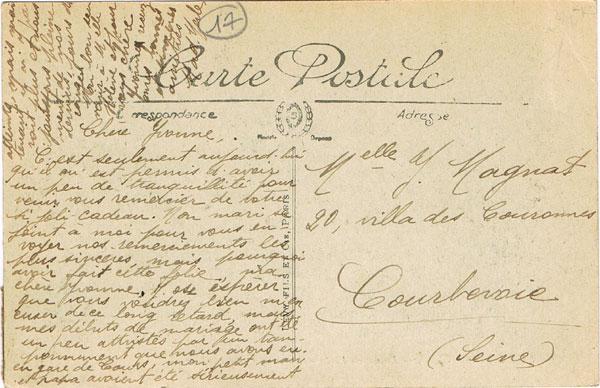 17
Carte Postale
Correspondance
Adresse
Modèle Déposé
Chère Yvonne,
C'est seulement aujourd'hui
qu'il m'est permis d'avoir
un peu de tranquillité pour
venir vous remercier de votre
si joli cadeau. Mon mari se
joint à moi pour vous en
voyer nos remerciements les
plus sincères, mais pourquoi
avoir fait cette folie, ma
chère Yvonne. J'ose espérer
que vous voudrez bien m'ex
cuser de ce long retard, mais
mes débuts de mariage ont été
un peu attristés par un tam-
ponnement que nous avons eu
en gare de Tours, mon petit mari
et papa avaient été sérieusement
LÉVY FILS ET CIE, PARIS
Melle Y. Magnat
20, villa des Couronnes
Courbevoie
(Seine)